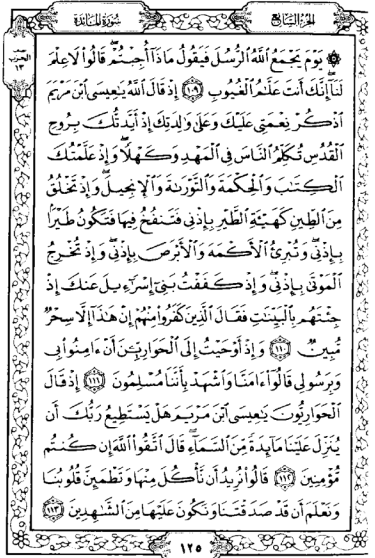 الجزء السابع
سورة المائدة
الحزب
١٣
۞ يَوْمَ يَجْمَعُ ٱللَّهُ ٱلرُّسُلَ فَيَقُولُ مَاذَآ أُجِبْتُمْ ۖ قَالُوا۟ لَا عِلْمَ
لَنَآ ۖ إِنَّكَ أَنتَ عَلَّٰمُ ٱلْغُيُوبِ ١٠٩ إِذْ قَالَ ٱللَّهُ يَٰعِيسَى ٱبْنَ مَرْيَمَ
ٱذْكُرْ نِعْمَتِى عَلَيْكَ وَعَلَىٰ وَٰلِدَتِكَ إِذْ أَيَّدتُّكَ بِرُوحِ
ٱلْقُدُسِ تُكَلِّمُ ٱلنَّاسَ فِى ٱلْمَهْدِ وَكَهْلًا ۖ وَإِذْ عَلَّمْتُكَ
ٱلْكِتَٰبَ وَٱلْحِكْمَةَ وَٱلتَّوْرَىٰةَ وَٱلْإِنجِيلَ ۖ وَإِذْ تَخْلُقُ
مِنَ ٱلطِّينِ كَهَيْـَٔةِ ٱلطَّيْرِ بِإِذْنِى فَتَنفُخُ فِيهَا فَتَكُونُ طَيْرًۢا
بِإِذْنِى ۖ وَتُبْرِئُ ٱلْأَكْمَهَ وَٱلْأَبْرَصَ بِإِذْنِى ۖ وَإِذْ تُخْرِجُ
ٱلْمَوْتَىٰ بِإِذْنِى ۖ وَإِذْ كَفَفْتُ بَنِىٓ إِسْرَٰٓءِيلَ عَنكَ إِذْ
جِئْتَهُم بِٱلْبَيِّنَٰتِ فَقَالَ ٱلَّذِينَ كَفَرُوا۟ مِنْهُمْ إِنْ هَٰذَآ إِلَّا سِحْرٌ
مُّبِينٌ ١١٠ وَإِذْ أَوْحَيْتُ إِلَى ٱلْحَوَارِيِّۦنَ أَنْ ءَامِنُوا۟ بِى
وَبِرَسُولِى قَالُوٓا۟ ءَامَنَّا وَٱشْهَدْ بِأَنَّنَا مُسْلِمُونَ ١١١ إِذْ قَالَ
ٱلْحَوَارِيُّونَ يَٰعِيسَى ٱبْنَ مَرْيَمَ هَلْ يَسْتَطِيعُ رَبُّكَ أَن
يُنَزِّلَ عَلَيْنَا مَآئِدَةً مِّنَ ٱلسَّمَآءِ ۖ قَالَ ٱتَّقُوا۟ ٱللَّهَ إِن كُنتُم
مُّؤْمِنِينَ ١١٢ قَالُوا۟ نُرِيدُ أَن نَّأْكُلَ مِنْهَا وَتَطْمَئِنَّ قُلُوبُنَا
وَنَعْلَمَ أَن قَدْ صَدَقْتَنَا وَنَكُونَ عَلَيْهَا مِنَ ٱلشَّٰهِدِينَ ١١٣
١٢٥